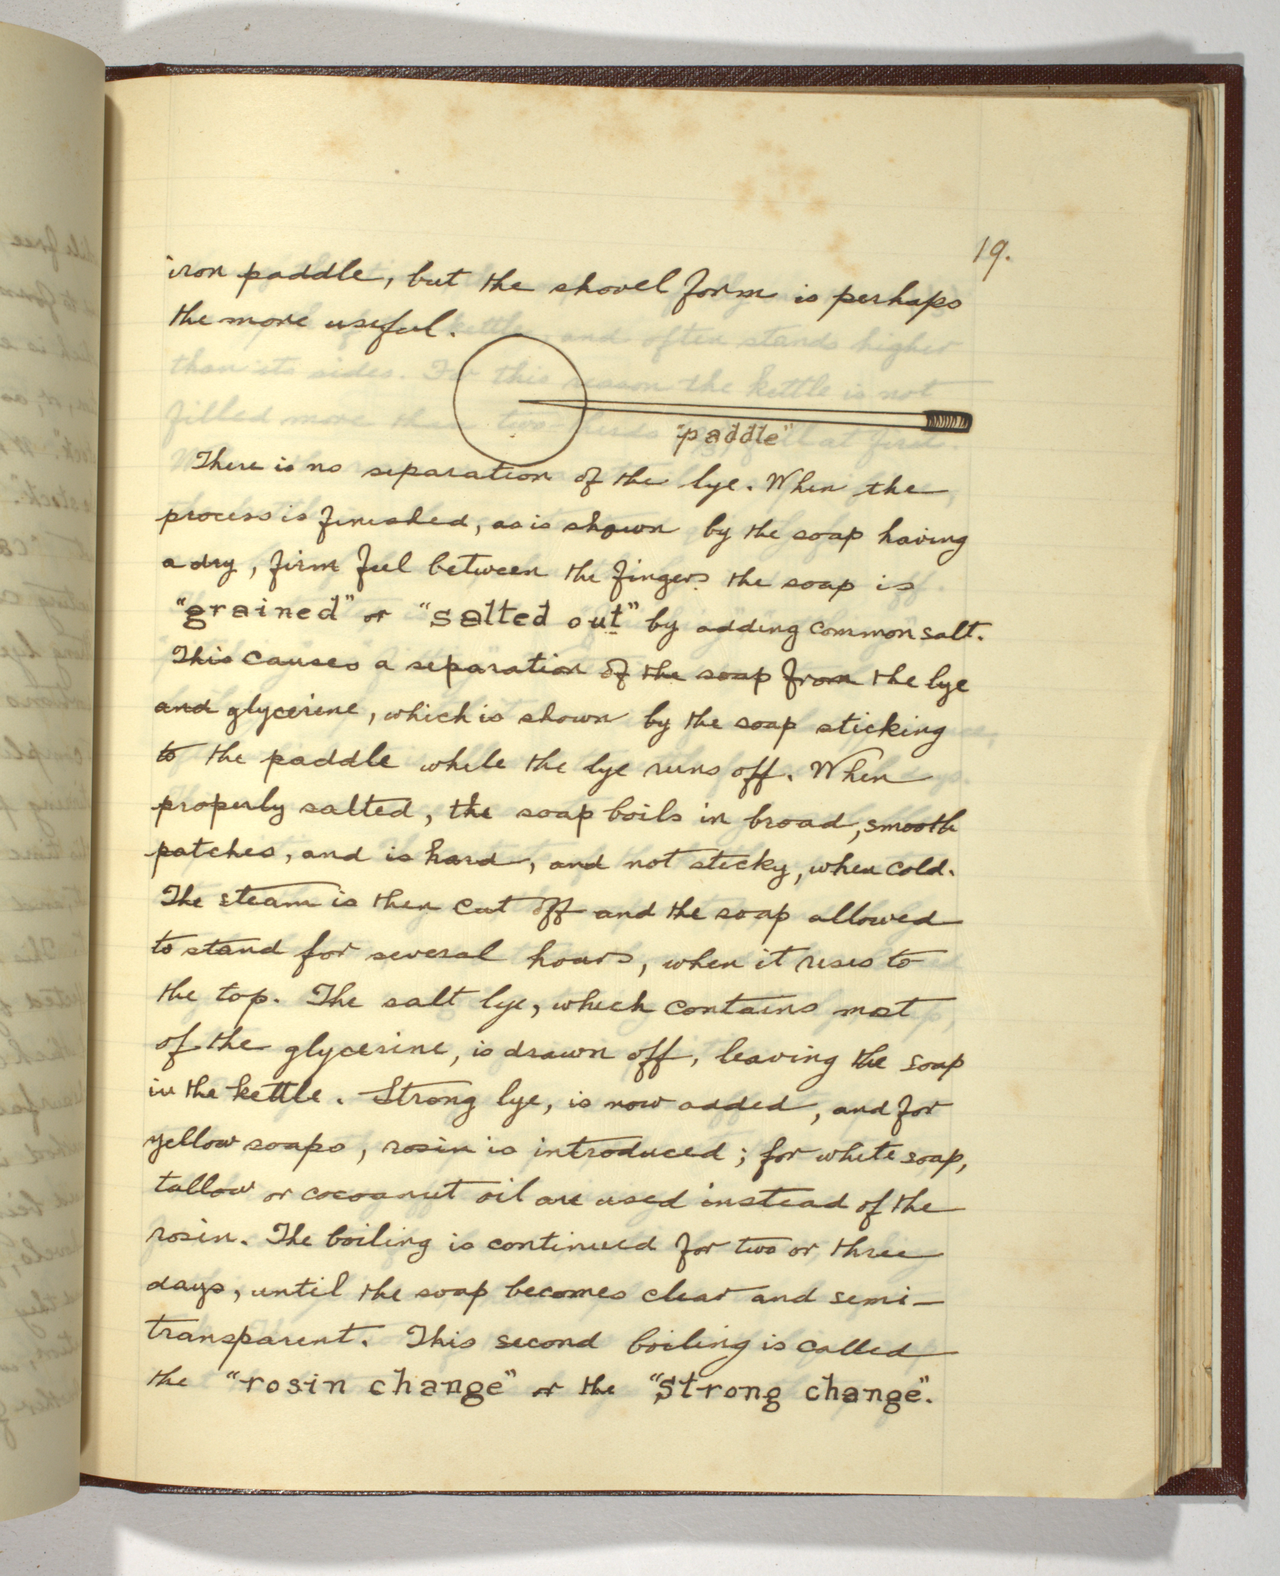 19.
iron paddle, but the shovel form is perhaps
the more useful.
"paddle"
There is no separation of the lye. When the
process is finished, as is shown by the soap having
a dry, firm feel between the fingers the soap is
"grained" or "salted out" by adding common salt.
This causes a separation of the soap from the lye
and glycerine, which is shown by the soap sticking
to the paddle while the lye runs off. When
properly salted, the soap boils in broad, smooth
patches, and is hard, and not sticky, when cold.
The steam is then cut off and the soap allowed
to stand for several hours, when it rises to
the top. The salt lye, which contains most
of the glycerine, is drawn off, leaving the soap
in the kettle. Strong lye, is now added, and for
yellow soaps, rosin is introduced; for white soap,
tallow or cocoanut oil are used instead of the
rosin. The boiling is continued for two or three
days, until the soap becomes clear and semi-
transparent. This second boiling is called
the "rosin change" or the "strong change".